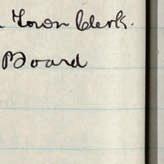 Town Clerk.
Board